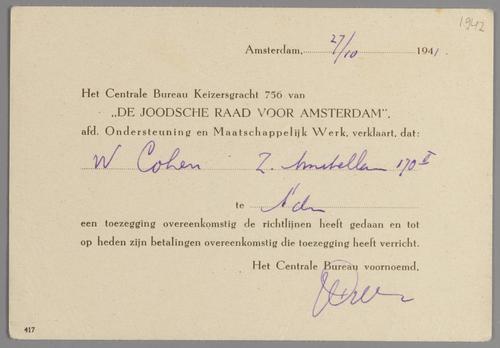 1942
Amsterdam, 27/10 1941.
Het Centrale Bureau Keizersgracht 756 van
„DE JOODSCHE RAAD VOOR AMSTERDAM",
afd. Ondersteuning en Maatschappelijk Werk, verklaart, dat:
W Cohen Z. Amstellaan 170 II
te A'dm
een toezegging overeenkomstig de richtlijnen heeft gedaan en tot
op heden zijn betalingen overeenkomstig die toezegging heeft verricht.
Het Centrale Bureau voornoemd,
417